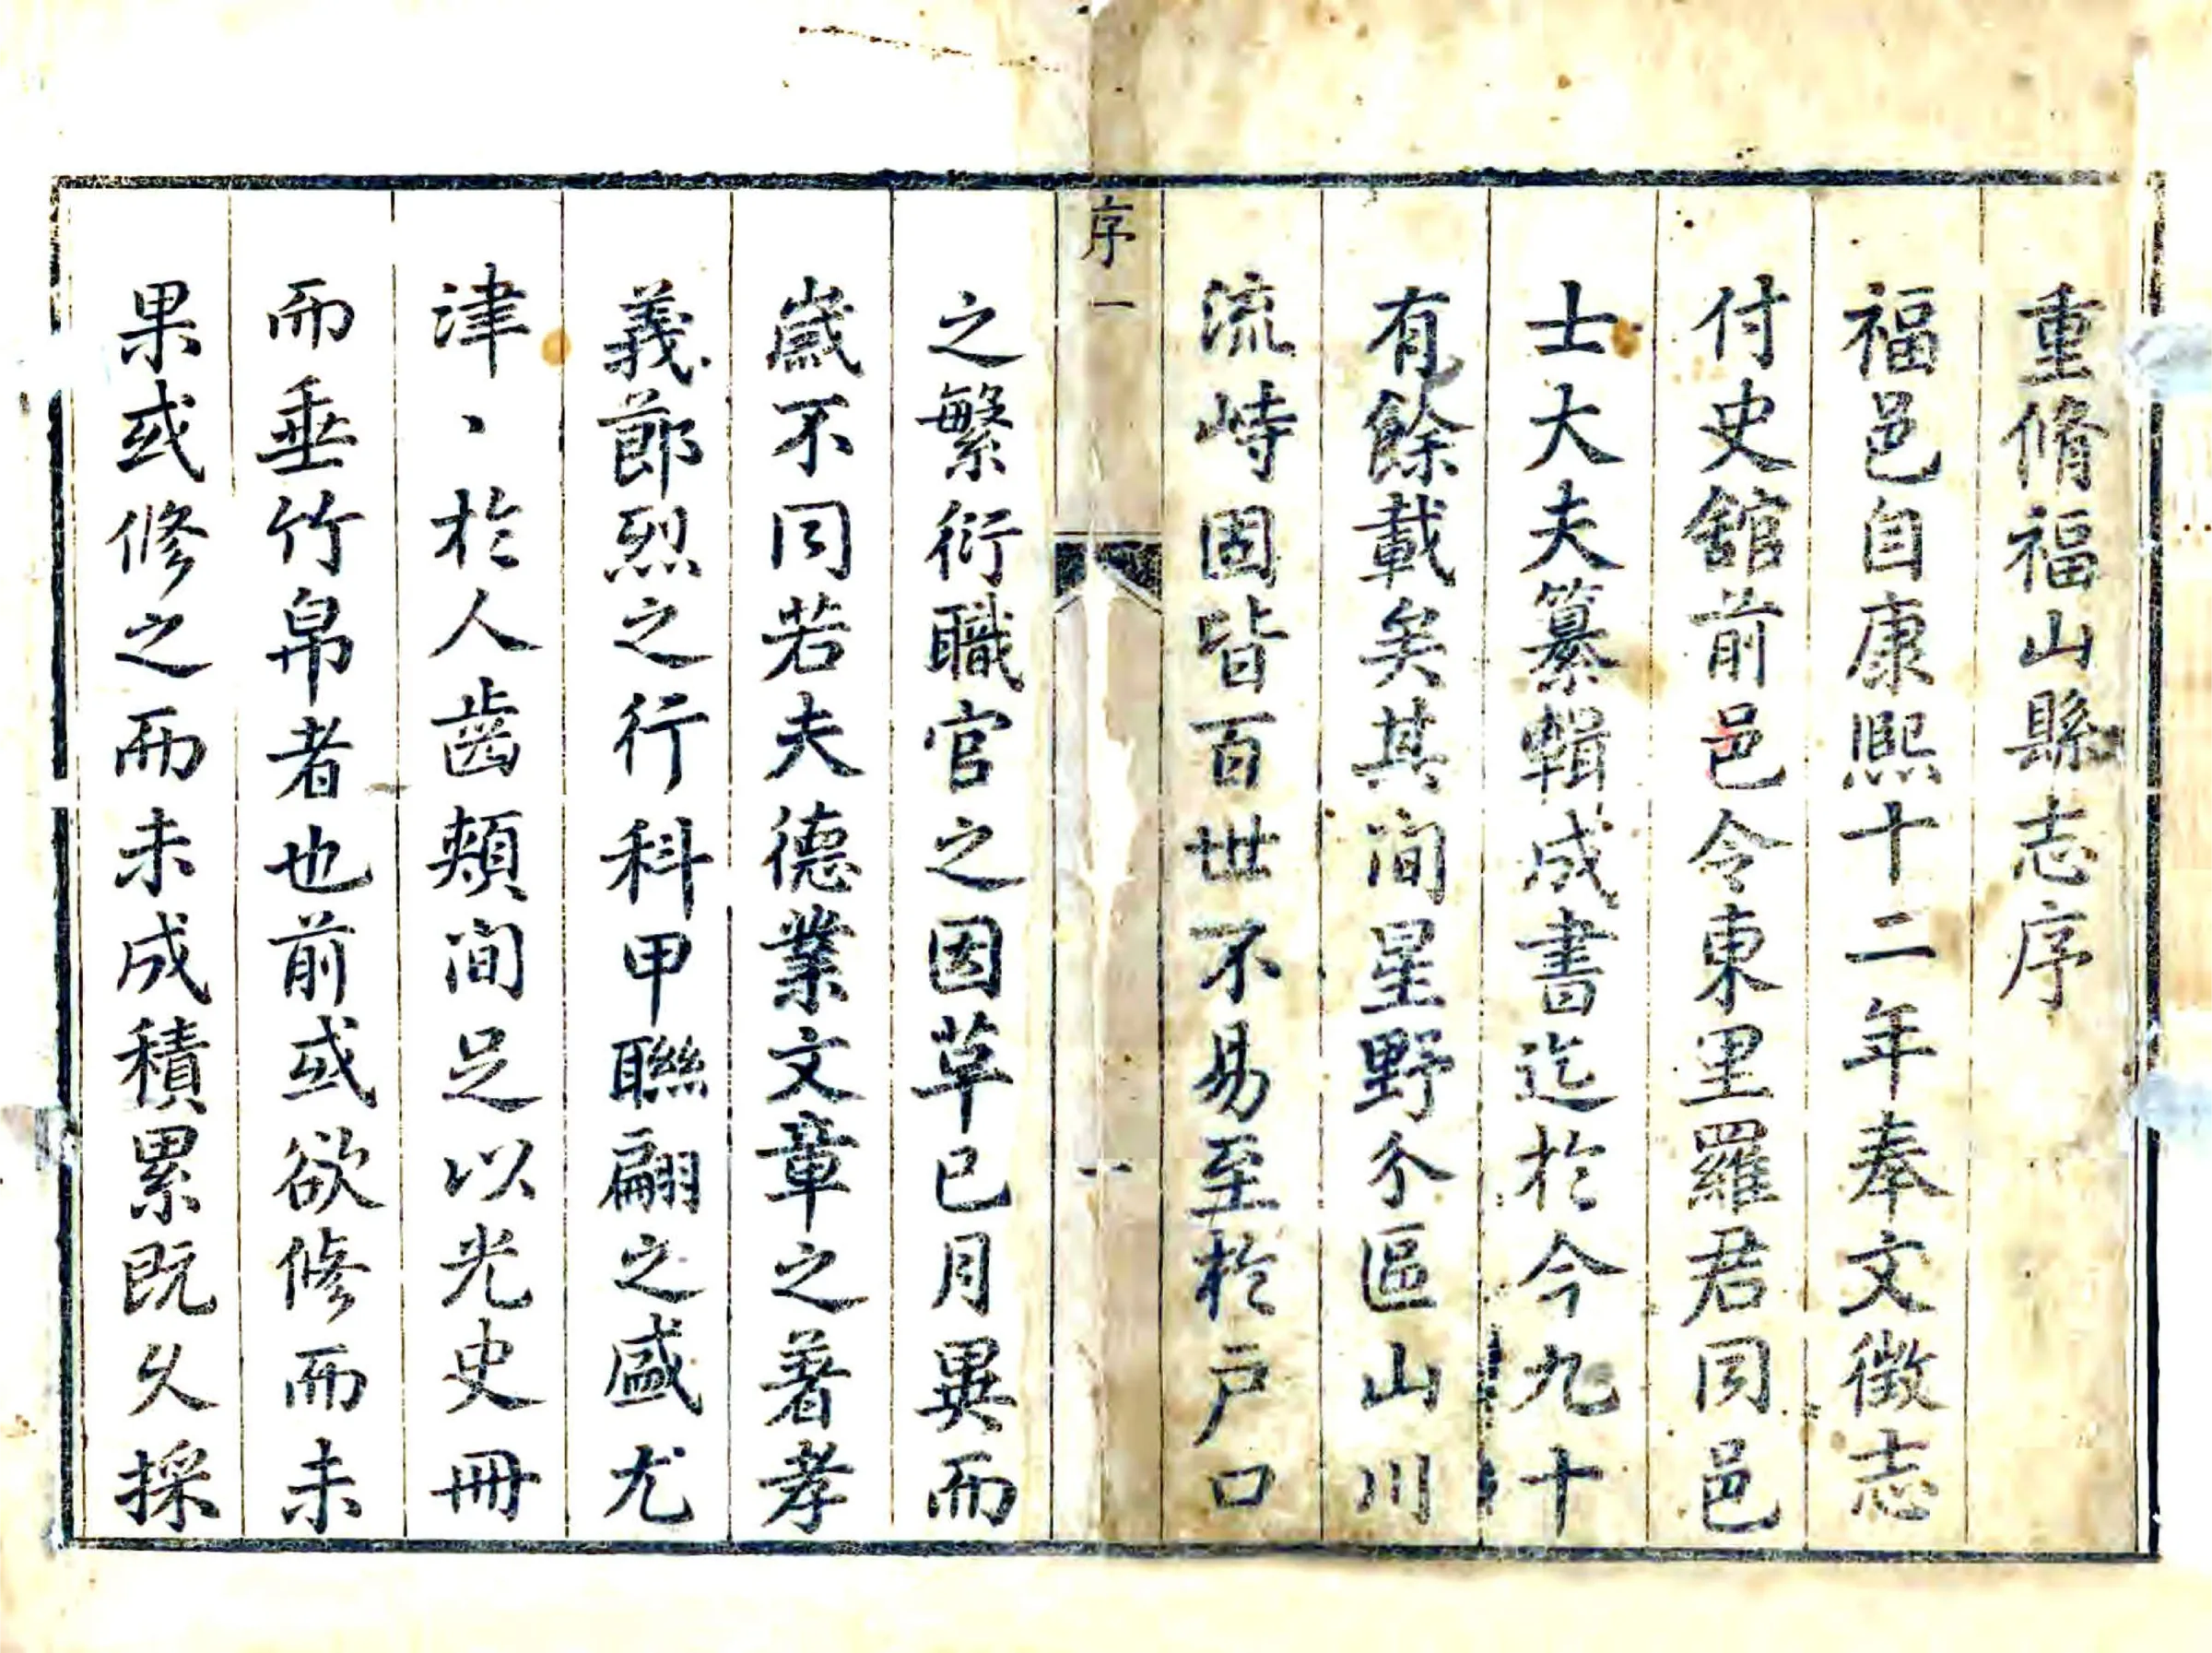 重脩福山縣志序
福邑自康熙十二年奉文徴志
付史舘前邑令東里羅君同邑
士大夫纂輯成書迄於今九十
有餘載矣其间星野分區山川
流峙固皆百世不易至於户口
序一
一
之繁衍職官之因革已月異而
嵗不同若夫德業文章之著孝
義節烈之行科甲聯翩之盛尤
津、於人齒頰间足以光史冊
而垂竹帛者也前或欲修而未
果或修之而未成積累既久採